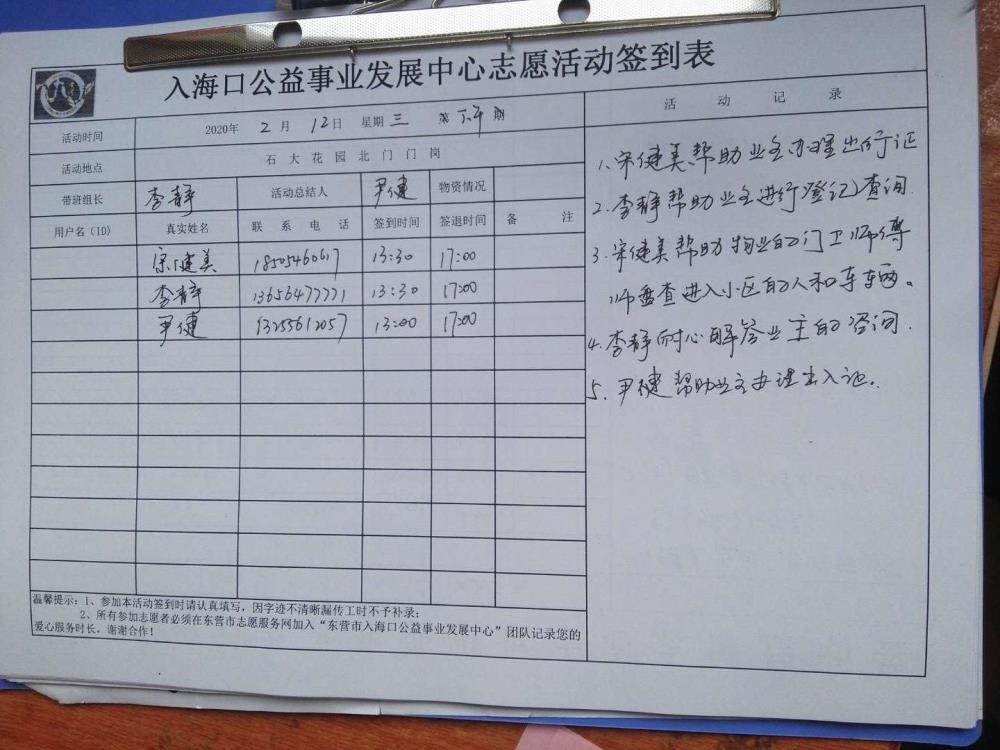 入海口公益事业发展中心志愿活动签到表
活动时间 2020年 2月 12日 星期三 第下午期
活动地点 石大花园北门门岗
带班组长 李静 活动总结人 尹健 物资情况
用户名(ID) 真实姓名 联系电话 签到时间 签退时间 备注
宋健美 18505460617 13:30 17:00
李静 13656477771 13:30 17:00
尹健 13255612057 13:00 17:00
温馨提示:1、参加本活动签到时请认真填写,因字迹不清晰漏传工时不予补录;
2、所有参加志愿者必须在东营市志愿服务网加入“东营市入海口公益事业发展中心”团队记录您的
爱心服务时长,谢谢合作!
活动记录
1、宋健美帮助业主办理出行证
2、李静帮助业主进行登记查询.
3、宋健美帮助物业的门卫师傅
师盘查进入小区的人和车辆。
4、李静耐心解答业主的咨询.
5、尹健帮助业主办理出入证.